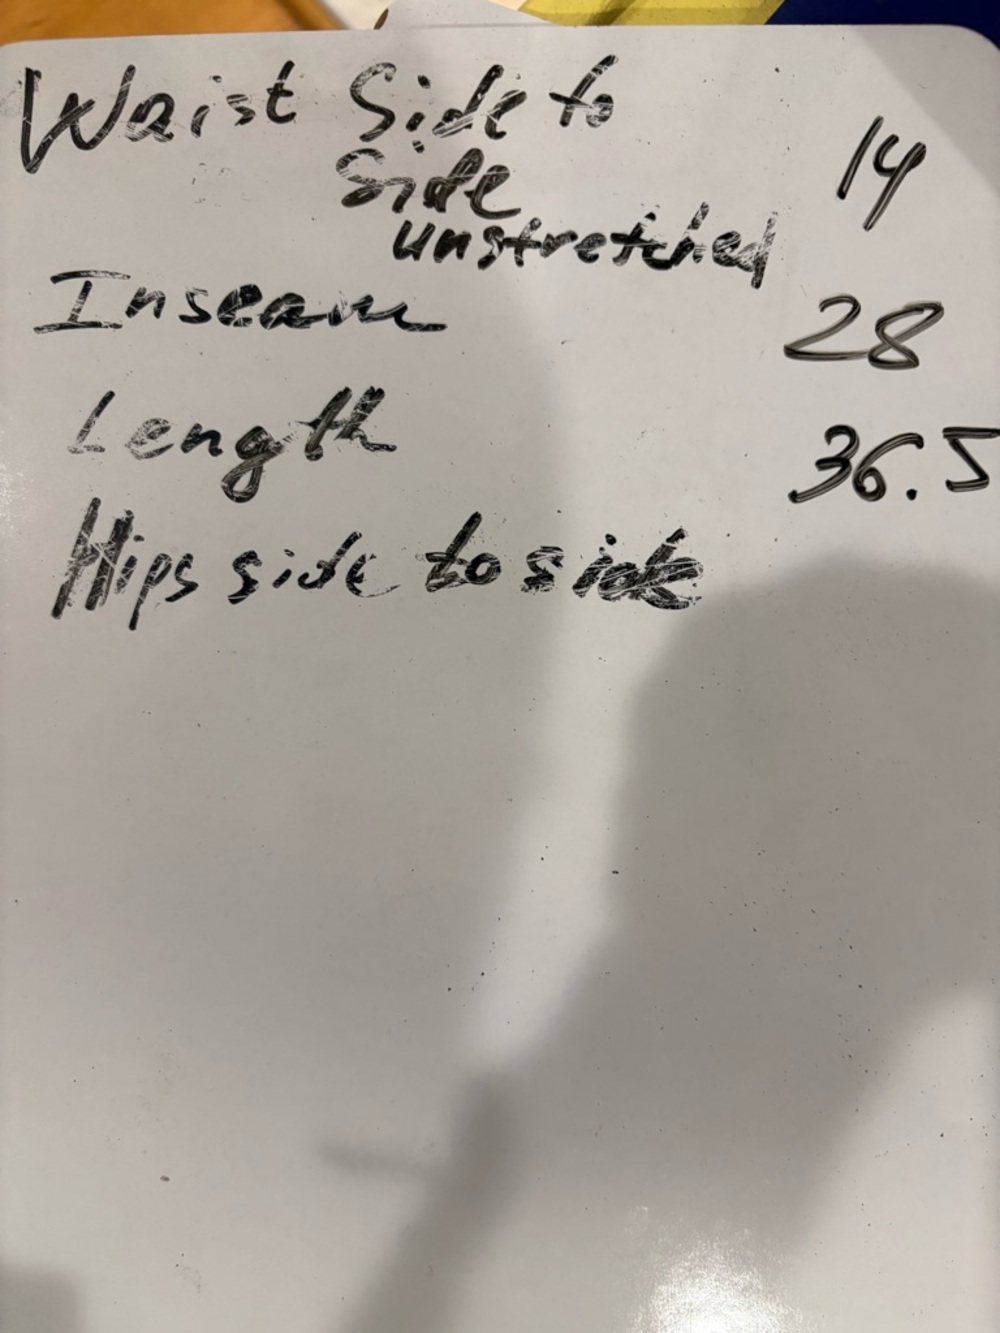 Waist Side to
Side 14
unstretched
Inseam 28
Length 36.5
Hips side to side